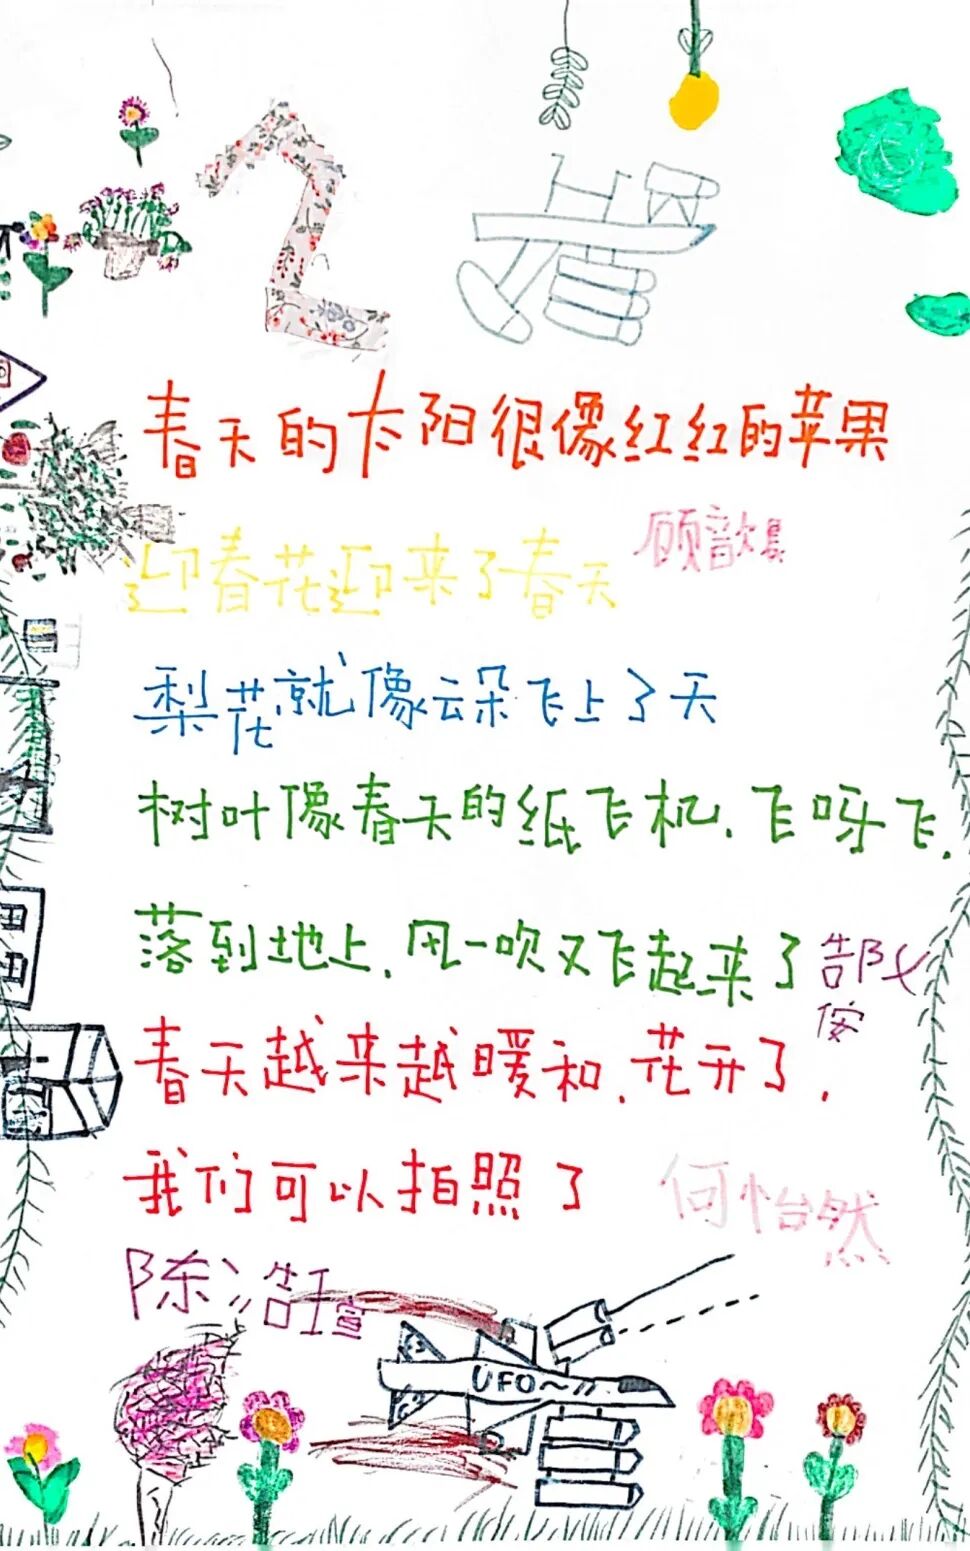 2
春天的太阳很像红红的苹果
迎春花迎来了春天
顾歆
梨花就像云朵飞上了天
树叶像春天的纸飞机、飞呀飞、
落到地上、风一吹又飞起来了
春天越来越暖和、花开了、
我们可以拍照了
何怡然
陈浩瑄
UFO~